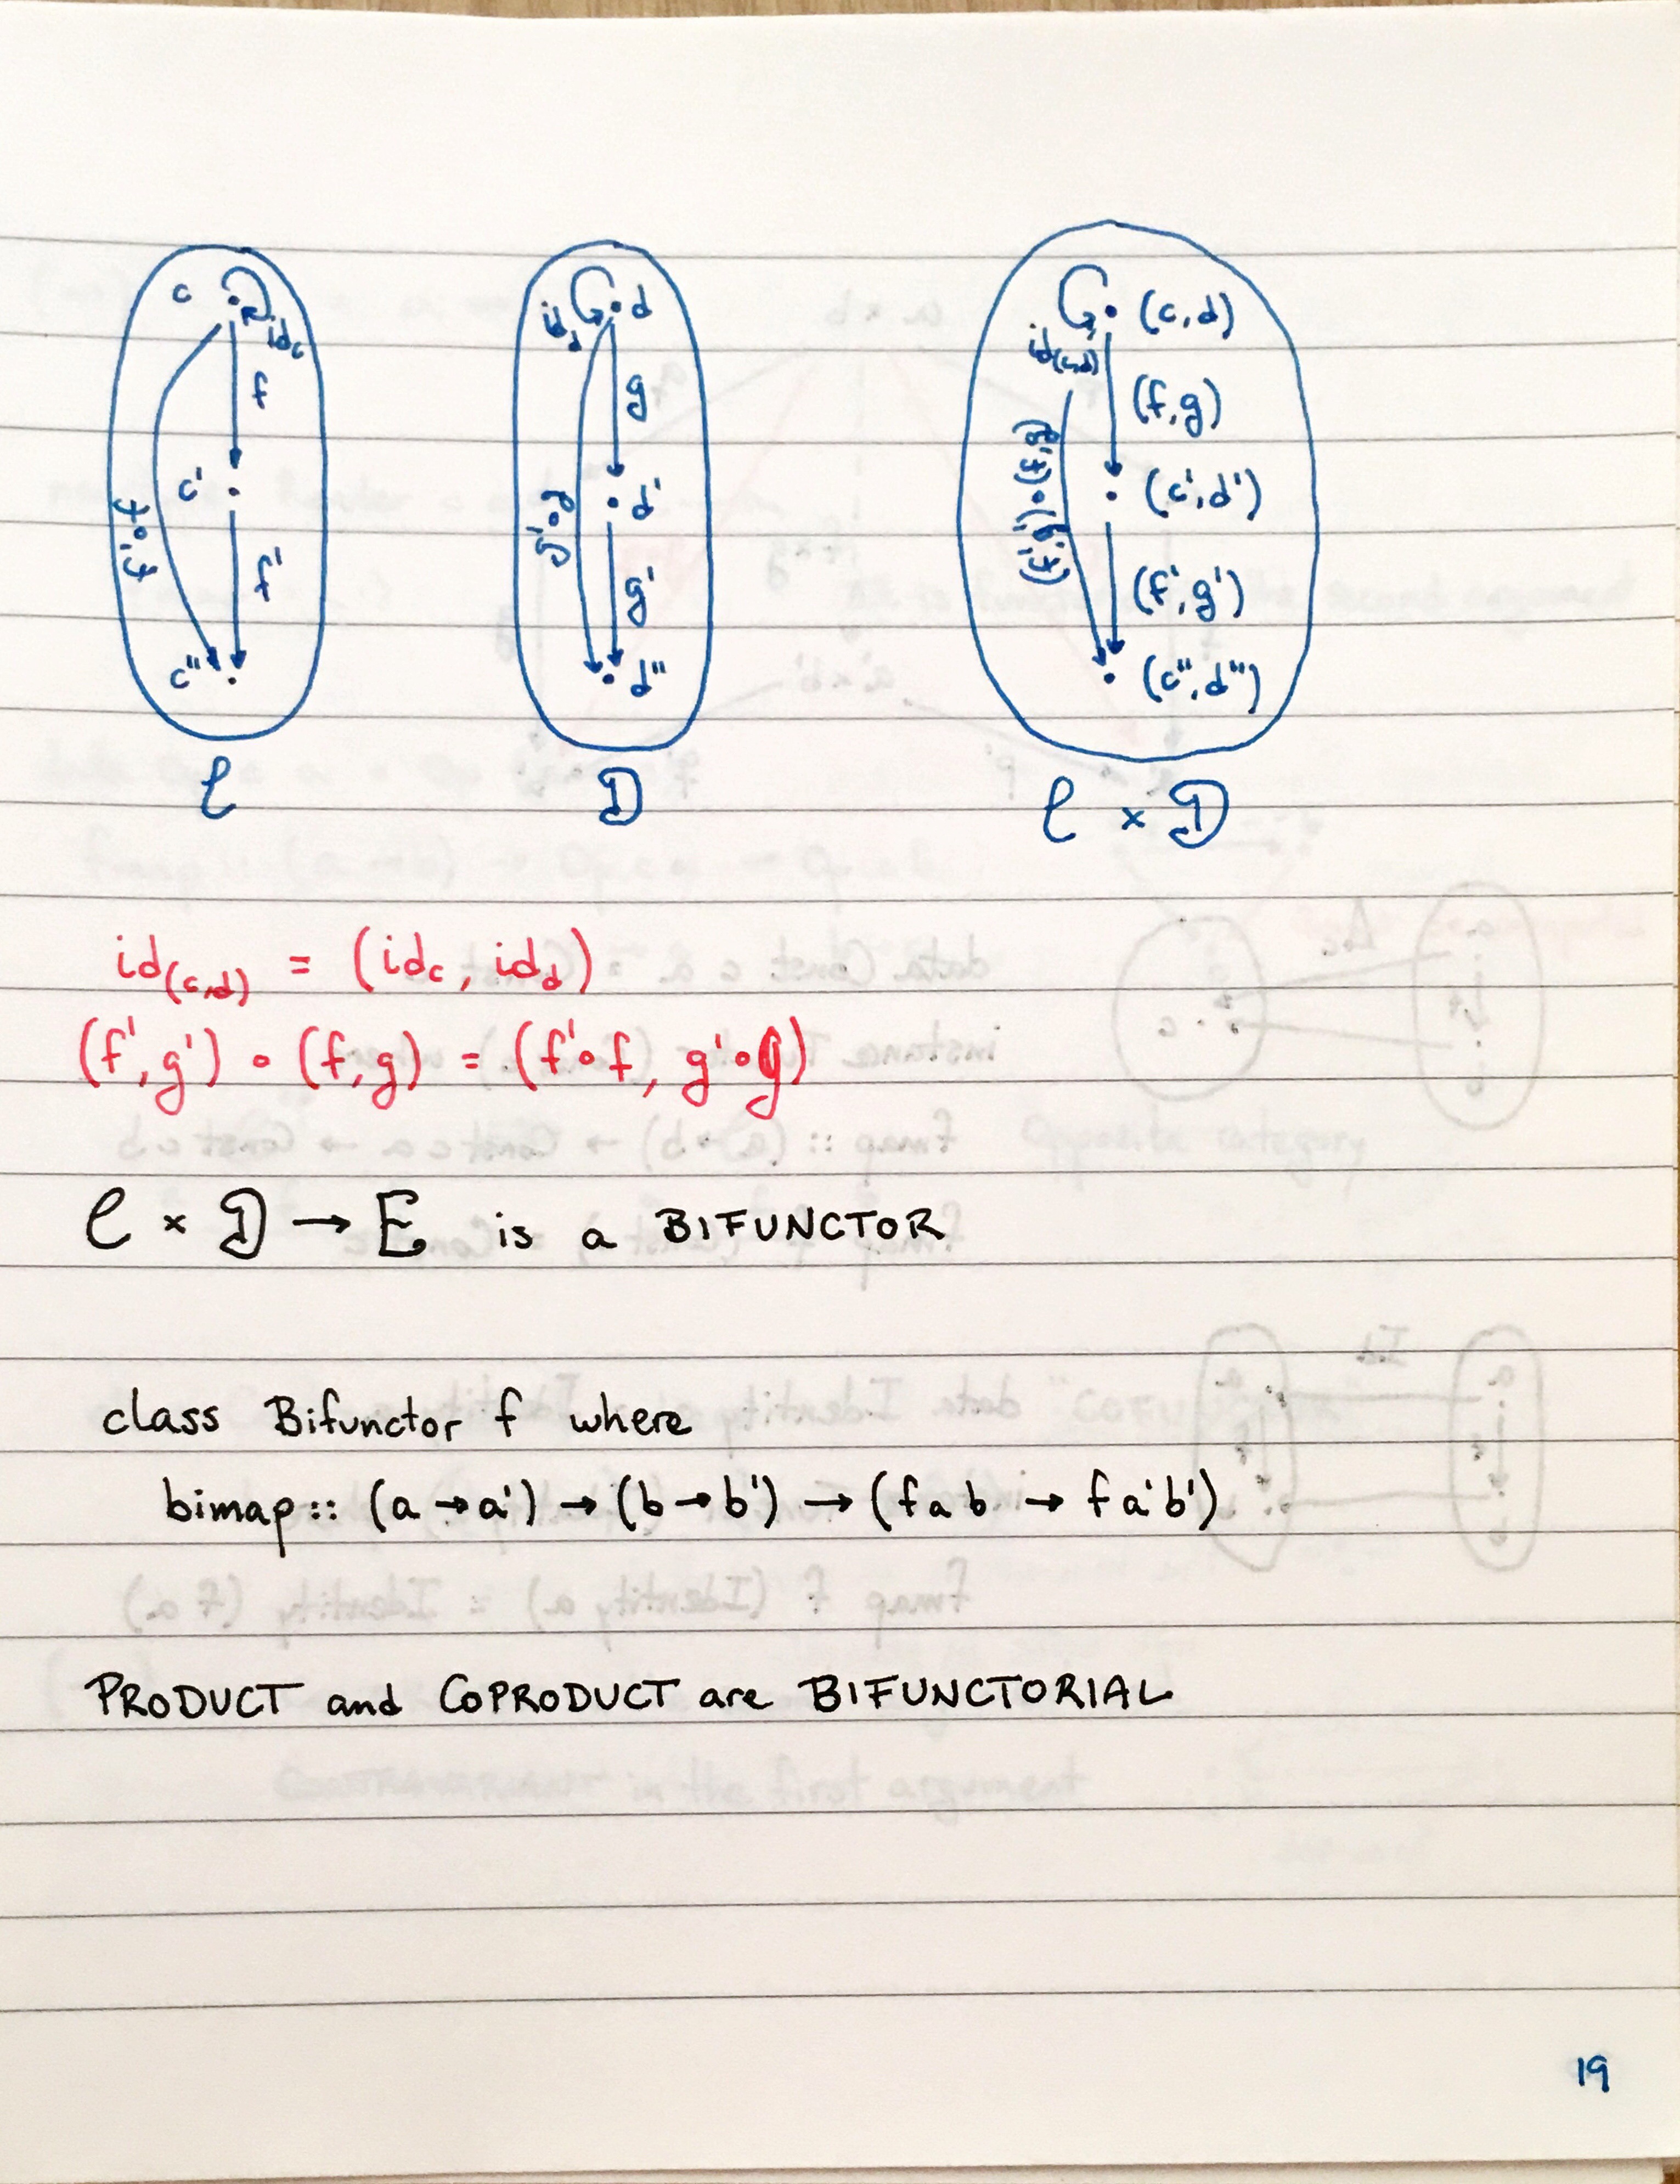 c id_c
f
c'
f'∘f
f'
c''
C
id_d d
g
d'
g'∘g
g'
d''
D
(c,d)
id_(c,d)
(f,g)
(f',g')∘(f,g)
(c',d')
(f',g')
(c'',d'')
C × D
id_(c,d) = (id_c, id_d)
(f',g') ∘ (f,g) = (f'∘f, g'∘g)
C × D → E is a BIFUNCTOR
class Bifunctor f where
bimap :: (a → a') → (b → b') → (f a b → f a' b')
PRODUCT and COPRODUCT are BIFUNCTORIAL
19